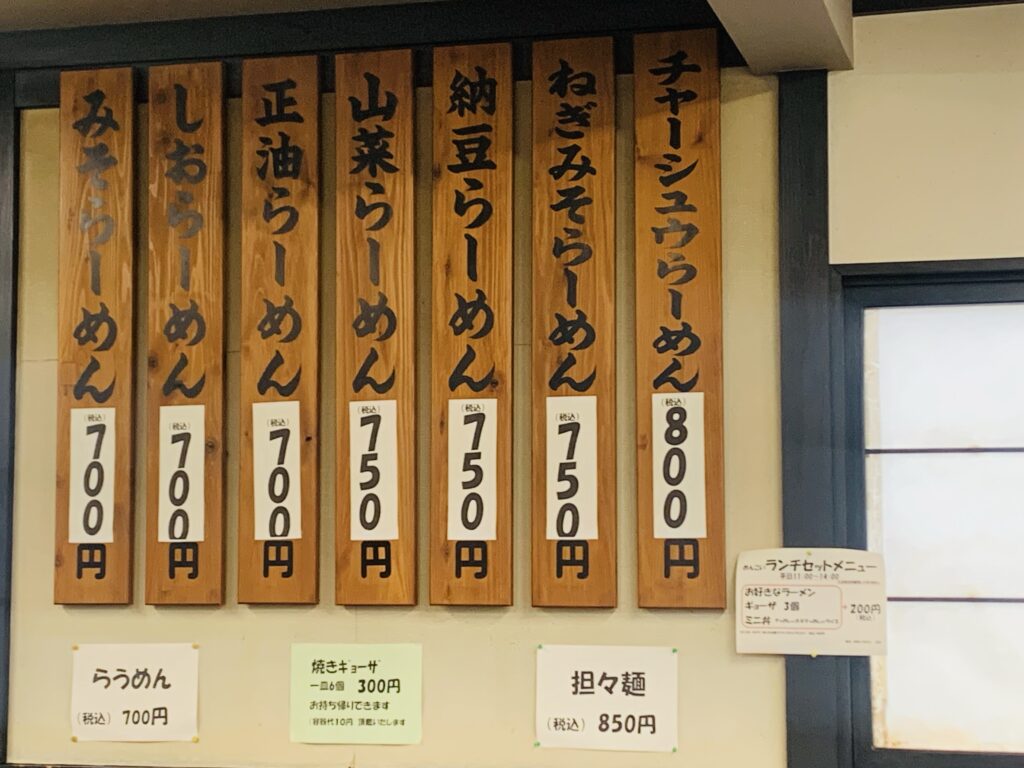 チャーシュウらーめん
(税込)
800円
ねぎみそらーめん
(税込)
750円
納豆らーめん
(税込)
750円
山菜らーめん
(税込)
750円
正油らーめん
(税込)
700円
しおらーめん
(税込)
700円
みそらーめん
(税込)
700円
らうめん
(税込) 700円
焼きギョーザ
一皿6個 300円
お持ち帰りできます
(容器代10円 頂戴いたします
担々麺
(税込) 850円
ランチセットメニュー
平日11:00～14:00
お好きなラーメン
ギョーザ 3個
ミニ丼
+200円
(税込)